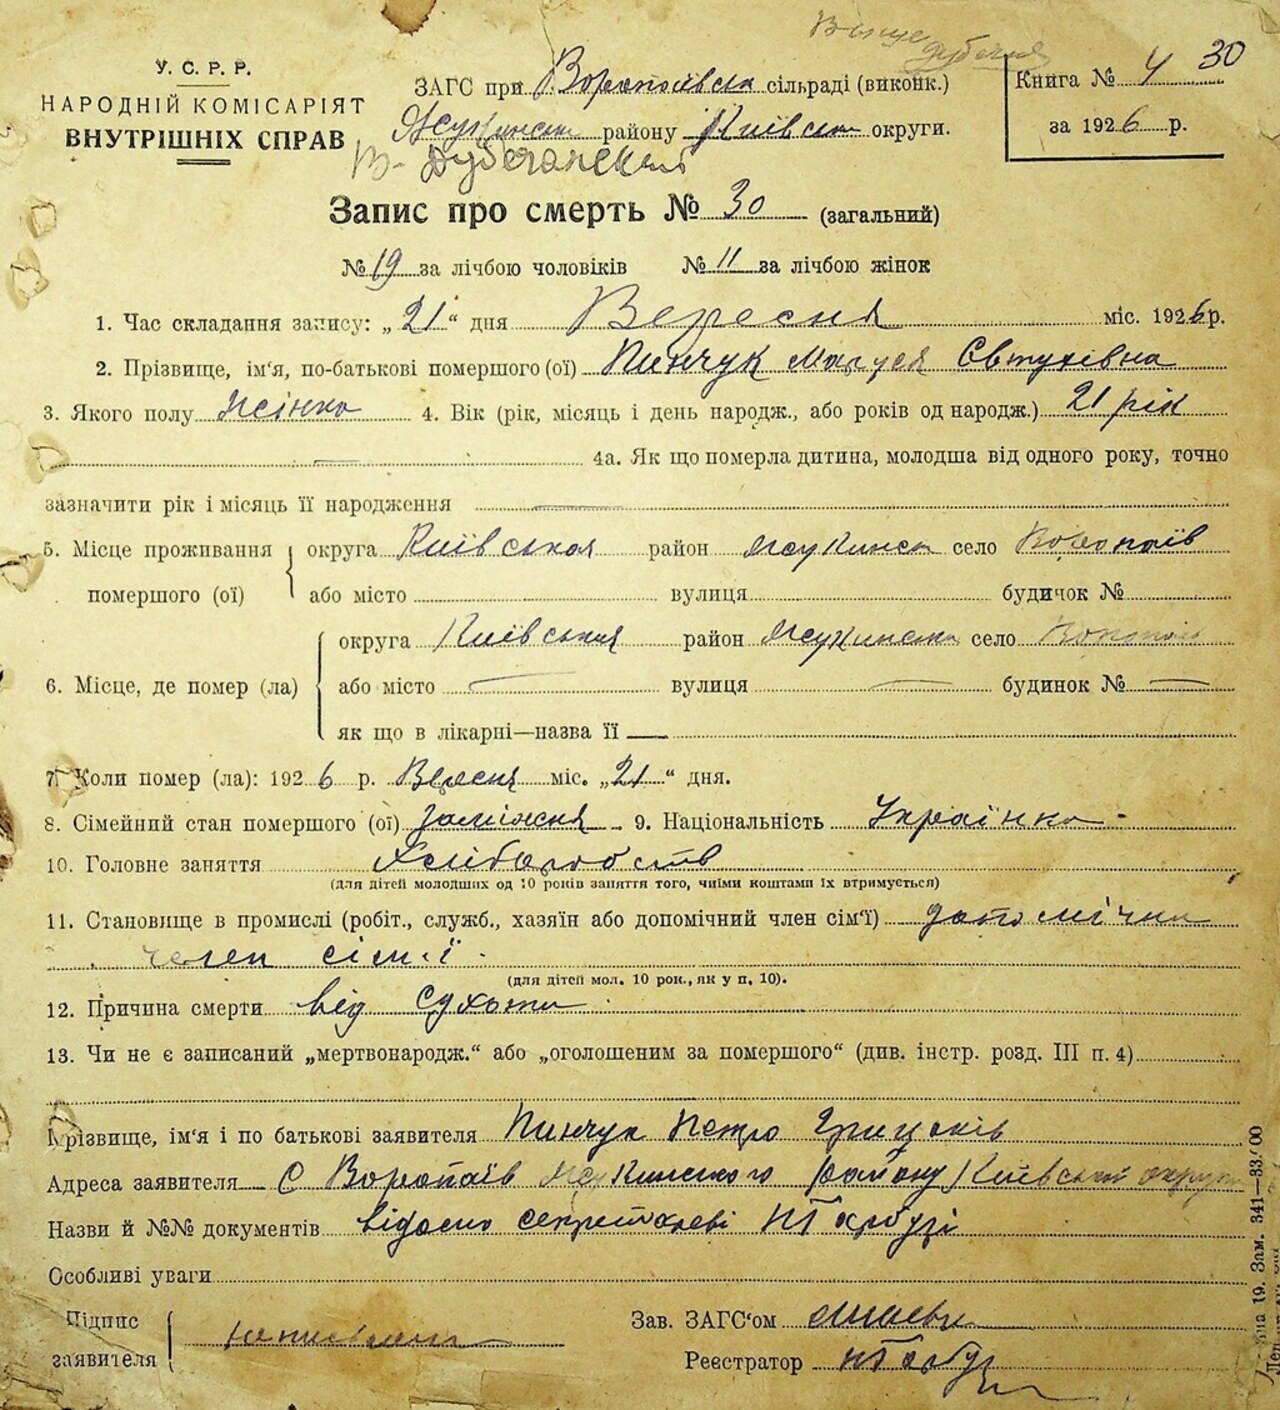 У. С. Р. Р.
НАРОДНІЙ КОМІСАРІЯТ
ВНУТРІШНІХ СПРАВ
Вище
Дубечня
ЗАГС при Воропаївськ сільраді (виконк.)
Жукинськ району Київськ округи.
В-Дубечанский
Книга № 4 30
за 1926 р.
Запис про смерть № 30 (загальний)
№ 19 за лічбою чоловіків № 11 за лічбою жінок
1. Час складання запису: „21“ дня Вересня міс. 1926 р.
2. Прізвище, ім'я, по-батькові помершого (ої) Пинчук Маруся Євтухівна
3. Якого полу Жсінка 4. Вік (рік, місяць і день народж., або років од народж.) 21 рік
4а. Як що померла дитина, молодша від одного року, точно
зазначити рік і місяць її народження
5. Місце проживання помершого (ої)
округа Київська район Жукинськ село Воропаїв
або місто вулиця будичок №
6. Місце, де помер (ла)
округа Київська район Жукинськ село Воропаїв
або місто — вулиця — будинок № —
як що в лікарні—назва її —
7. Коли помер (ла): 1926 р. Вересня міс. „21“ дня.
8. Сімейний стан помершого (ої) Заміжня 9. Національність Українка
10. Головне заняття Хліборобств
(для дітей молодших од 10 років заняття того, чиїми коштами їх втримується)
11. Становище в промислі (робіт., служб., хазяїн або допомічний член сім'ї) допомічни
член сім'ї
(для дітей мол. 10 рок., як у п. 10).
12. Причина смерти від Сухоти
13. Чи не є записаний „мертвонародж.“ або „оголошеним за помершого“ (див. інстр. розд. III п. 4)
Прізвище, ім'я і по батькові заявителя Пинчук Петро Грицьків
Адреса заявителя С Воропаїв Жукинського району Київської округи
Назви й №№ документів відомо секретареві
Особливі уваги
Підпис заявителя
Зав. ЗАГС'ом
Реєстратор
19. Зам. 341—83.